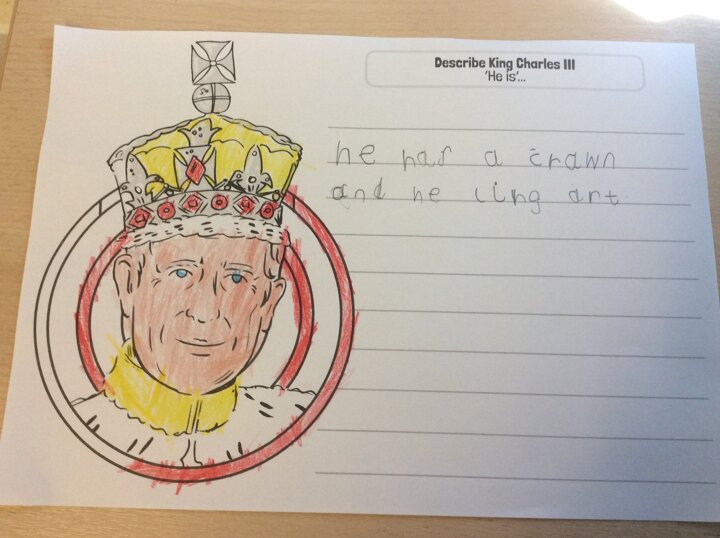 Describe King Charles III
'He is'...
he has a crawn
and he ling art.